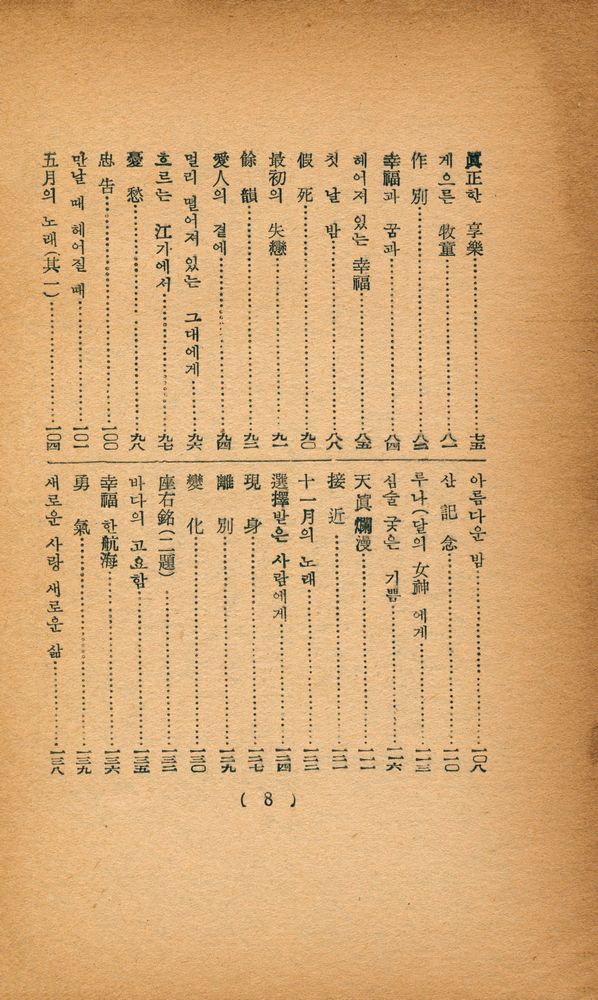 眞正한 享樂……七五
게으른 牧童……八一
作別……八三
幸福과 꿈과……八四
헤어져 있는 幸福……八五
첫날밤……八八
假死……九〇
最初의 失戀……九一
餘韻……九二
愛人의 곁에……九四
멀리 떨어져 있는 그대에게……九六
흐르는 江가에서……九七
憂愁……九八
忠告……一〇〇
만날 때 헤어질 때……一〇一
五月의 노래(其一)……一〇四
아름다운 밤……一〇八
산 記念……一一〇
루나(달의 女神 에게……一一三
심술 궂은 기쁨……一一六
天眞爛漫……一一一
接近……一二一
十一月의 노래……一二三
選擇받은 사람에게……一二四
現身……一二七
離別……一二九
變化……一三〇
座右銘(二題)……一三二
바다의 고요함……一三五
幸福한 航海……一三六
勇氣……一三九
새로운 사랑 새로운 삶……一三八
( 8 )